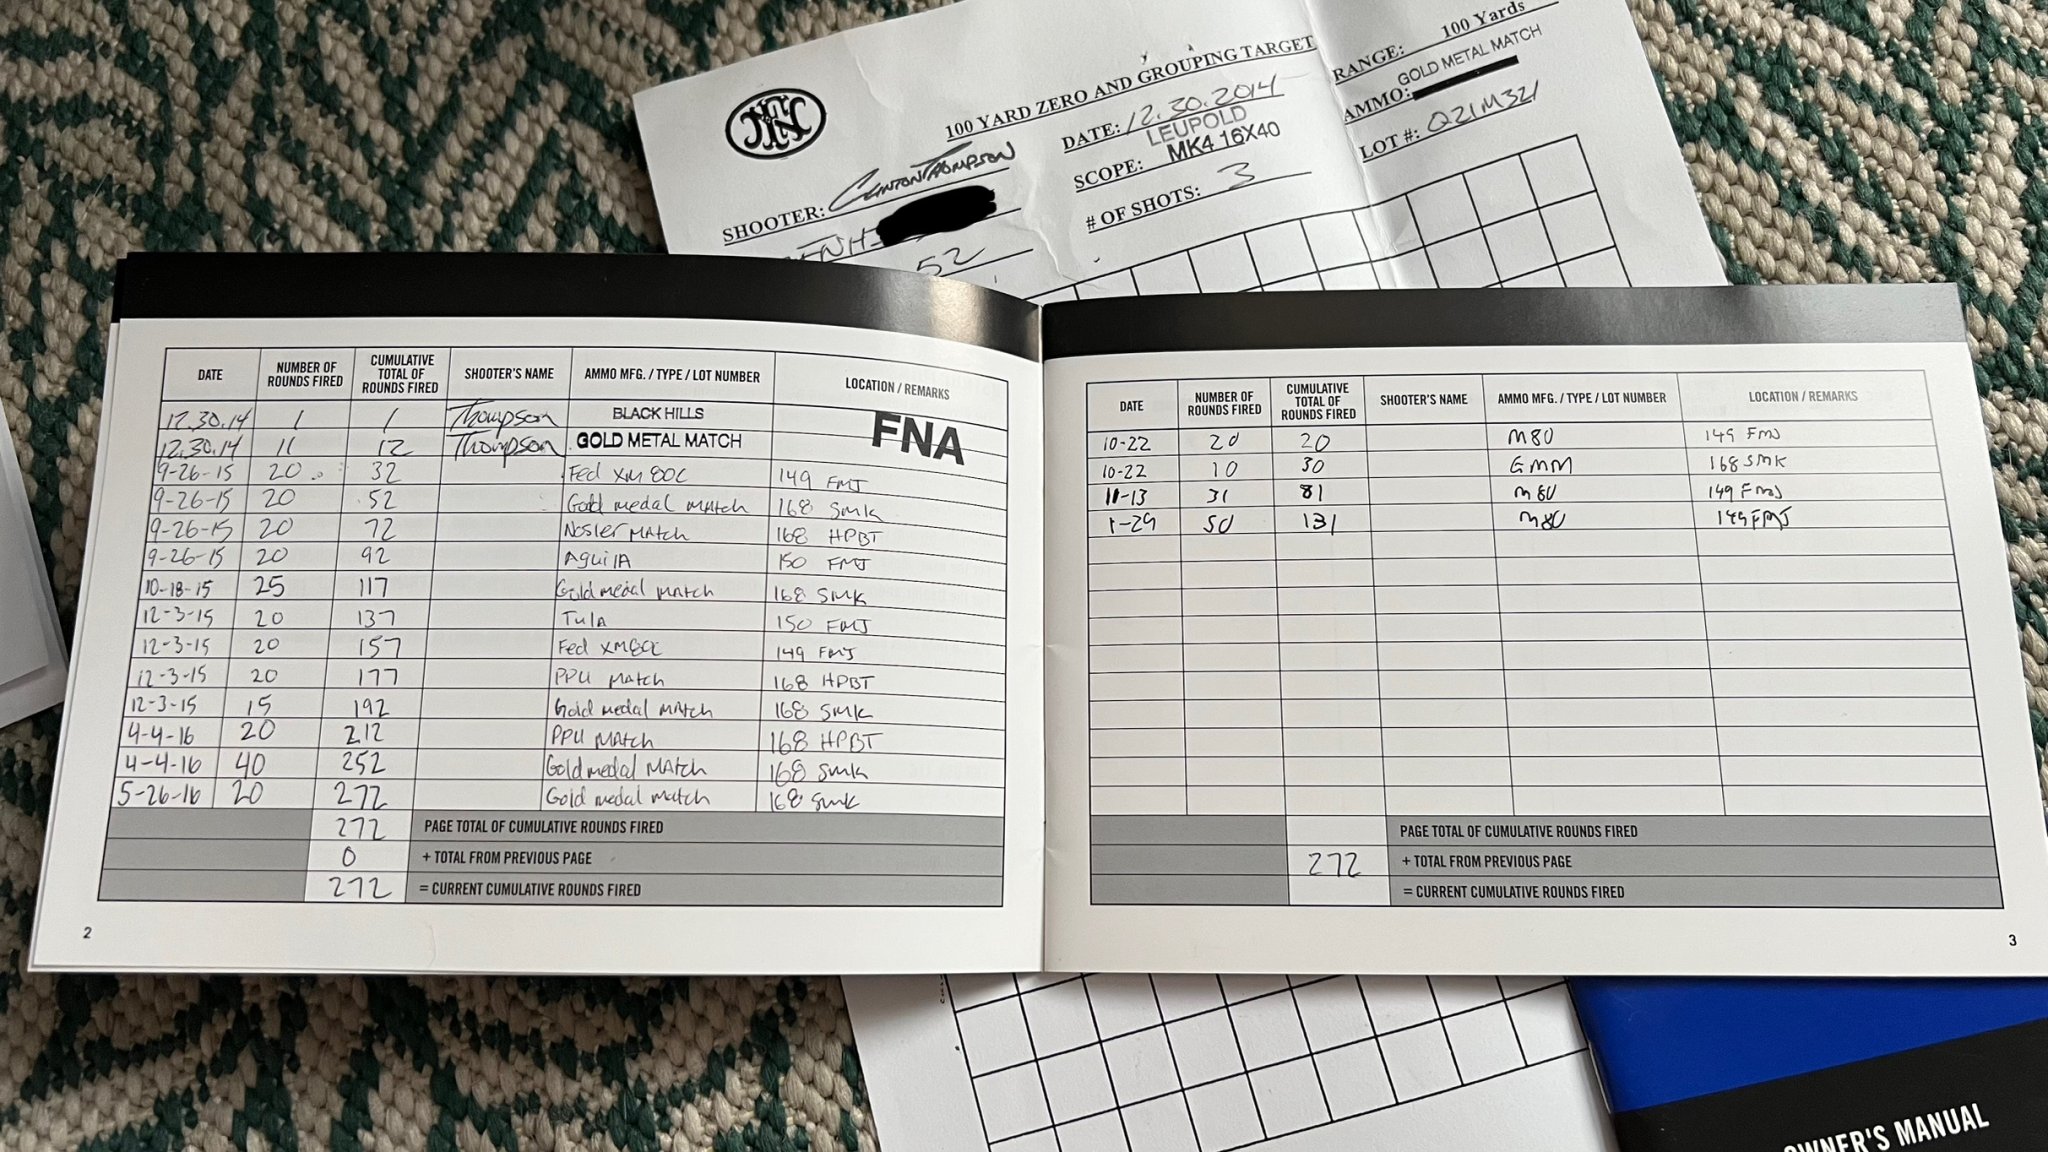 100 YARD ZERO AND GROUPING TARGET
SHOOTER: CLINTON THOMPSON
52
DATE: 12.30.2014
SCOPE: LEUPOLD
MK4 16X40
# OF SHOTS: 3
RANGE: 100 Yards
GOLD METAL MATCH
AMMO:
LOT #: Q21M321
DATE NUMBER OF ROUNDS FIRED CUMULATIVE TOTAL OF ROUNDS FIRED SHOOTER'S NAME AMMO MFG. / TYPE / LOT NUMBER LOCATION / REMARKS
12.30.14 1 1 Thompson BLACK HILLS FNA
12.30.14 11 12 Thompson GOLD METAL MATCH
9-26-15 20 32 Fed XM80C 149 FMJ
9-26-15 20 52 Gold medal match 168 SMK
9-26-15 20 72 Nosler Match 168 HPBT
9-26-15 20 92 AguilA 150 FMJ
10-18-15 25 117 Gold medal match 168 SMK
12-3-15 20 137 Tula 150 FMJ
12-3-15 20 157 Fed XM80C 149 FMJ
12-3-15 20 177 PPU Match 168 HPBT
12-3-15 15 192 Gold medal match 168 SMK
4-4-16 20 212 PPU Match 168 HPBT
4-4-16 40 252 Gold medal Match 168 SMK
5-26-16 20 272 Gold medal match 168 SMK
272 PAGE TOTAL OF CUMULATIVE ROUNDS FIRED
0 + TOTAL FROM PREVIOUS PAGE
272 = CURRENT CUMULATIVE ROUNDS FIRED
2
DATE NUMBER OF ROUNDS FIRED CUMULATIVE TOTAL OF ROUNDS FIRED SHOOTER'S NAME AMMO MFG. / TYPE / LOT NUMBER LOCATION / REMARKS
10-22 20 20 M80 149 FMJ
10-22 10 30 GMM 168 SMK
11-13 31 81 M80 149 FMJ
1-29 50 131 M80 149 FMJ
PAGE TOTAL OF CUMULATIVE ROUNDS FIRED
272 + TOTAL FROM PREVIOUS PAGE
= CURRENT CUMULATIVE ROUNDS FIRED
3
OWNER'S MANUAL